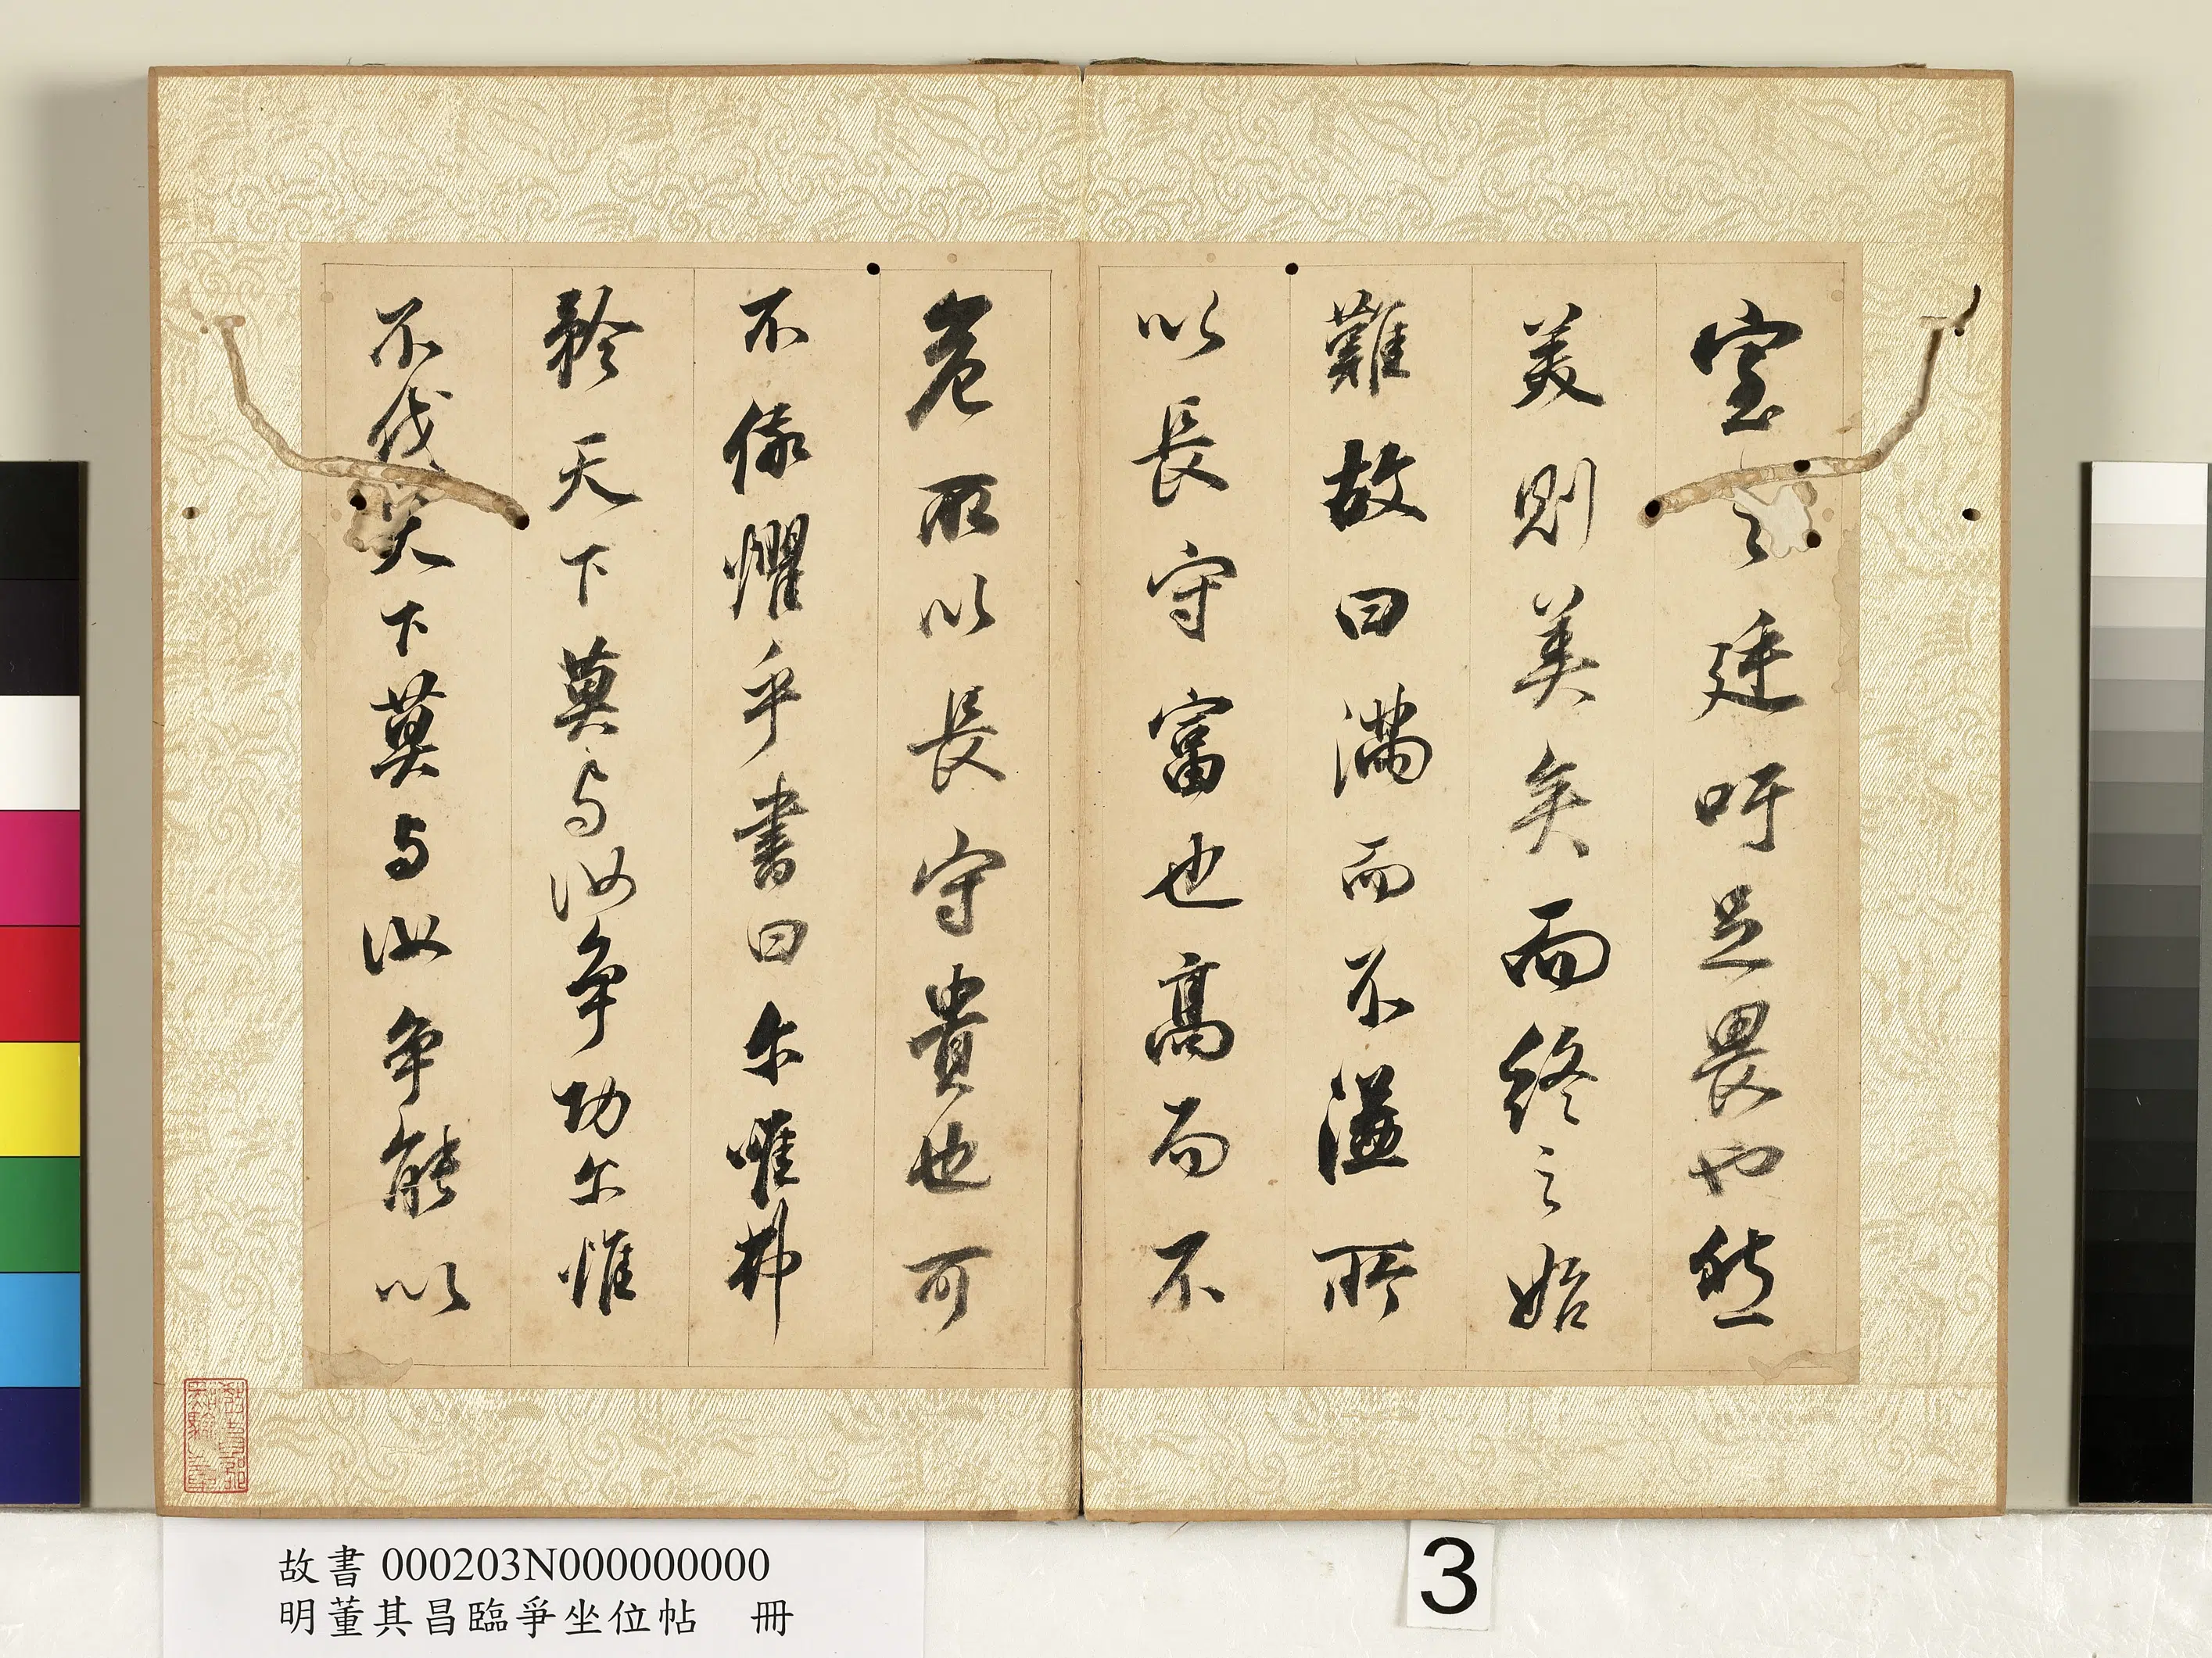 室之廷吁足畏也然
美則美矣而終之始
難故曰滿而不溢所
以長守富也高而不
危所以長守貴也可
不儆懼乎書曰尒唯弗
矜天下莫与汝争功尒惟
不伐天下莫与汝争能以
故書 000203N000000000
明董其昌臨爭坐位帖 冊
3